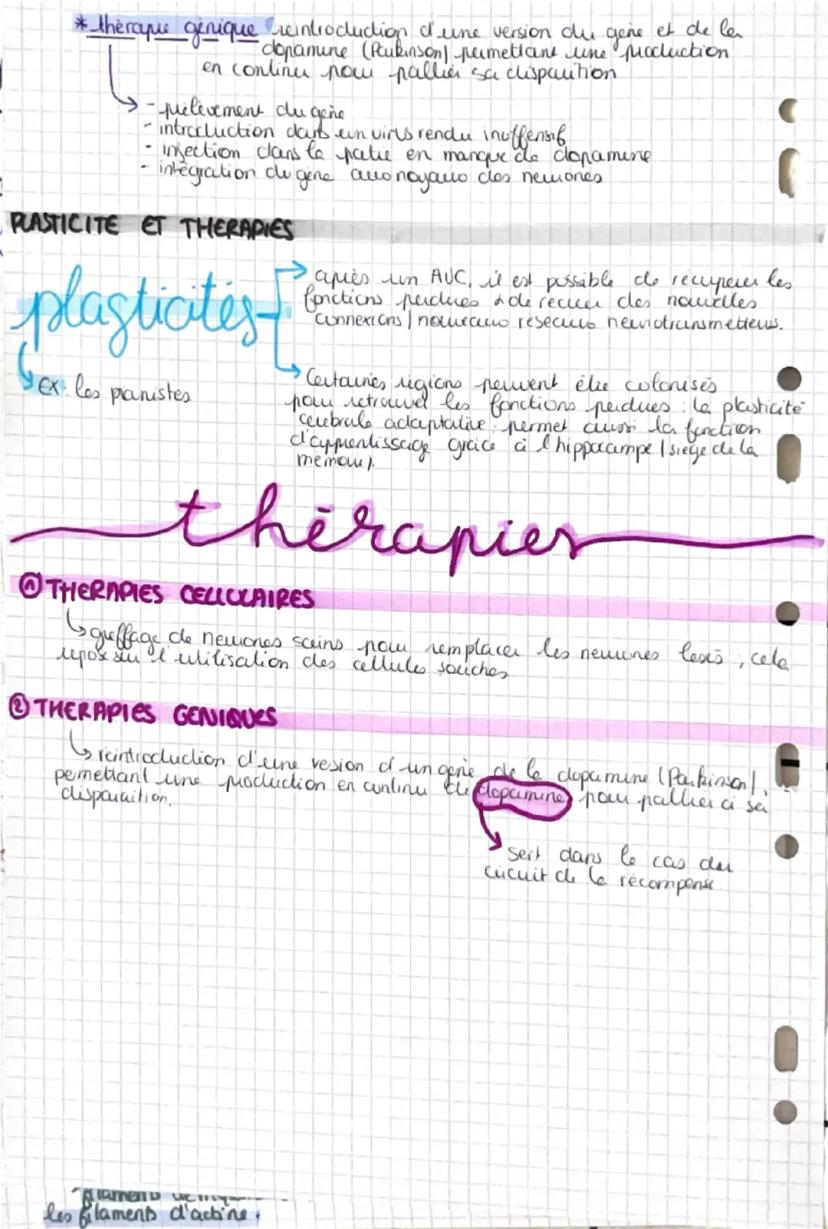 *thérapie génique réintroduction d'une version du gène et de la
dopamine (Parkinson) permettant une production
en continu pour pallier sa disparition
- prélèvement du gène
- introduction dans un virus rendu inoffensif
- injection dans la partie en manque de dopamine
- intégration du gène aux noyaux des neurones
PLASTICITE ET THERAPIES
plasticités
après un AVC, il est possible de récupérer les
fonctions perdues & de recréer des nouvelles
connexions / nouveaux réseaux neurotransmetteurs.
EX: les pianistes
Certaines régions peuvent être colonisés
pour retrouver les fonctions perdues : la plasticité
cérébrale adaptative permet aussi la fonction
d'apprentissage grâce à l'hippocampe (siège de la
mémoire).
thérapies
① THERAPIES CELLULAIRES
greffage de neurones sains pour remplacer les neurones lésés, cela
repose sur l'utilisation des cellules souches
② THERAPIES GENIQUES
réintroduction d'une version d'un gène de la dopamine (Parkinson),
permettant une production en continu de dopamine pour pallier à sa
disparition.
sert dans le cas du
circuit de la récompense
filaments
les filaments d'actine.